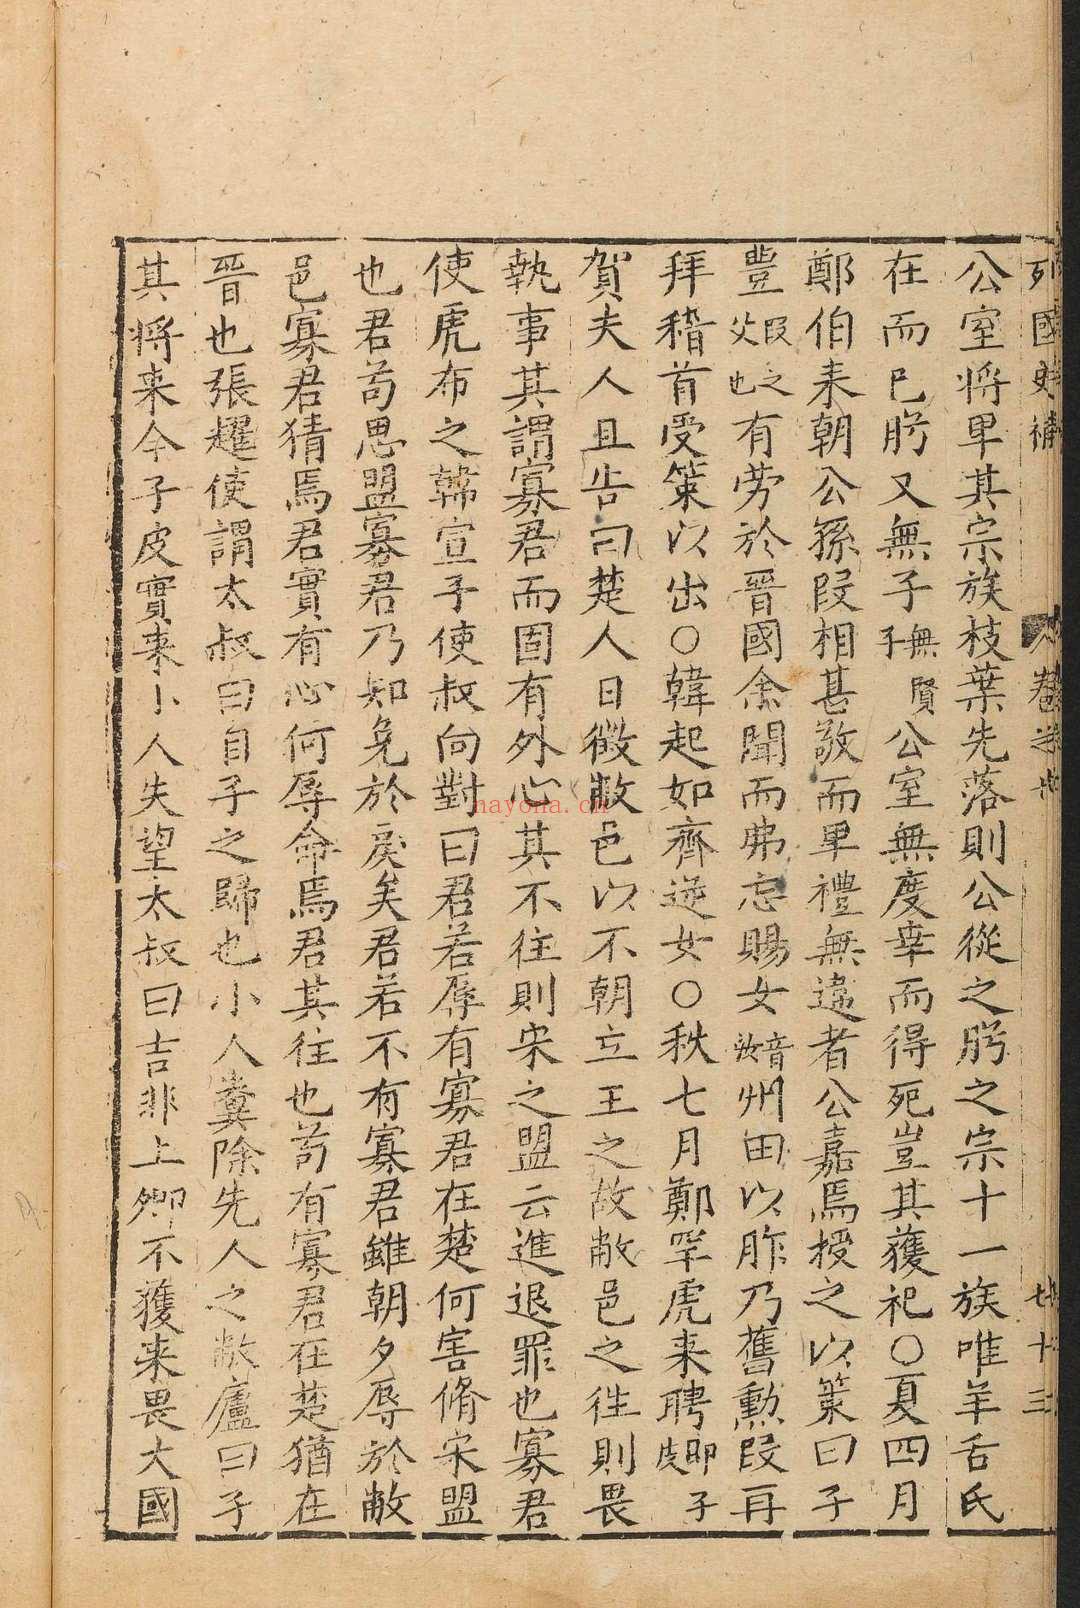 列國史補 卷 七十三
公室將卑其宗族枝葉先落則公從之肸之宗十一族唯羊舌氏
在而已肸又無子無賢子公室無度幸而得死豈其獲祀○夏四月
鄭伯来朝公孫段相甚敬而卑禮無違者公嘉焉授之以策曰子
豐段之父也有劳於晉國余聞而弗忘賜女音汝州田以胙乃舊勲段再
拜稽首受策以出○韓起如齊逆女○秋七月鄭罕虎来聘即子皮
賀夫人且告曰楚人日徵敝邑以不朝立王之故敝邑之徃則畏
執事其謂寡君而固有外心其不往則宋之盟云進退罪也寡君
使虎布之韓宣子使叔向對曰君若辱有寡君在楚何害脩宋盟
也君苟思盟寡君乃知免於戾矣君若不有寡君雖朝夕辱於敝
邑寡君猜焉君實有心何辱命焉君其往也苟有寡君在楚猶在
晉也張趯使謂太叔曰自子之歸也小人糞除先人之敝廬曰子
其将来今子皮實来小人失望太叔曰吉非上卿不獲来畏大國
nayona.cn